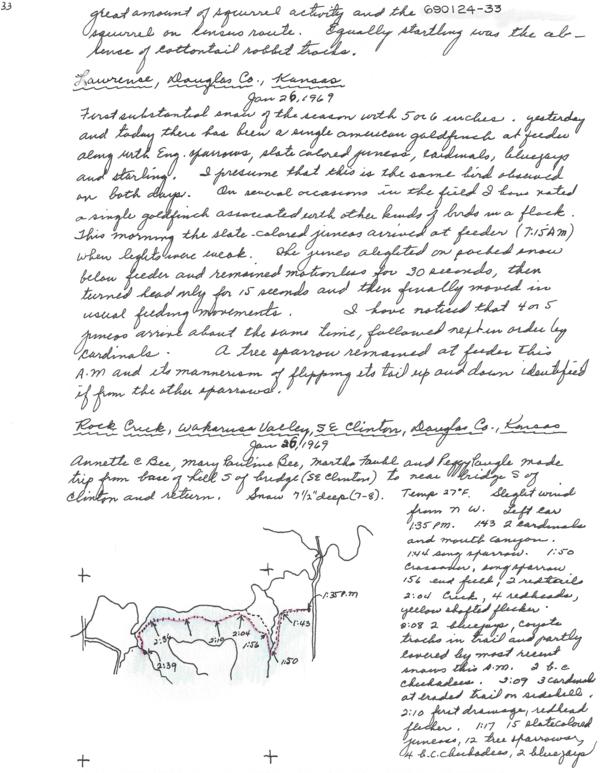 33
great amount of squirrel activity and the 690124-33
squirrel on census route. Equally startling was the ab-
sense of cottontail rabbit tracks.
Lawrence, Douglas Co., Kansas
Jan 26, 1969
First substantial snow of the season with 5 or 6 inches. yesterday
and today there has been a single american goldfinch at feeder
along with Eng. sparrows, slate colored juncos, cardinals, bluejays
and starling. I presume that this is the same bird observed
on both days. On several occasions in the field I have noted
a single goldfinch associated with other kinds of birds in a flock.
This morning the slate-colored juncos arrived at feeder (7:15 AM)
when lights were weak. The junco alighted on packed snow
below feeder and remained motionless for 30 seconds, then
turned head only for 15 seconds and then finally moved in
usual feeding movements. I have noticed that 4 or 5
juncos arrive about the same time, followed next in order by
cardinals. A tree sparrow remained at feeder this
A.M and its mannerism of flipping its tail up and down identified
it from the other sparrows.
Rock Creek, Wakarusa Valley, SE Clinton, Douglas Co., Kansas
Jan 26, 1969
Annette C Bee, Mary Pauline Bee, Martha and Peggy made
trip from base of hill S of bridge (SE Clinton) to near bridge S of
Clinton and return. Snow 7 1/2" deep (7-8).
Temp 27°F. Slight wind
from N W. Left car
1:35 PM. 1:43 2 cardinals
and mouth canyon.
1:44 song sparrow. 1:50
Crossover, song sparrow
1:56 end field, 2 redtails
2:04 Creek, 4 redheads,
yellow shafted flicker.
2:08 2 bluejays, coyote
tracks in trail and partly
covered by most recent
snows this A.M. 2 b.c
chickadees. 2:09 3 cardinals
at eroded trail on sidehill.
2:10 first drainage, redhead
flicker. 1:17 15 slatecolored
juncos, 12 tree sparrows,
4 b.c. chickadees, 2 bluejays
1:35 P.M
1:43
1:50
1:56
2:04
2:19
2:34
2:39